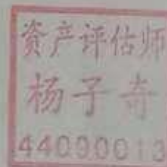 资产评估师
杨子奇
44090013